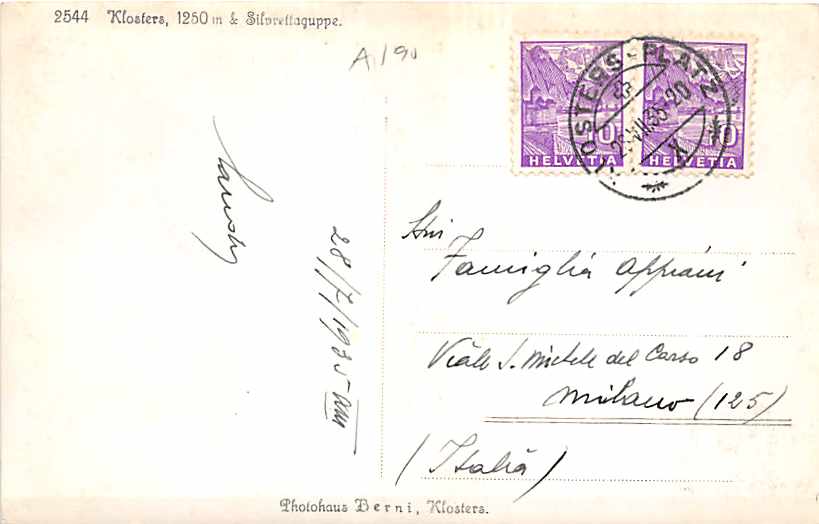 2544 Klosters, 1250 m & Silvrettaguppe.
A/90
10 10
HELVETIA HELVETIA
KLOSTERS-PLATZ
VII.35-20
X
28/7/1935-XIII
Famiglia Appiani
Viale S. Michele del Carso 18
Milano (125)
(Italia)
Photohaus Berni, Klosters.